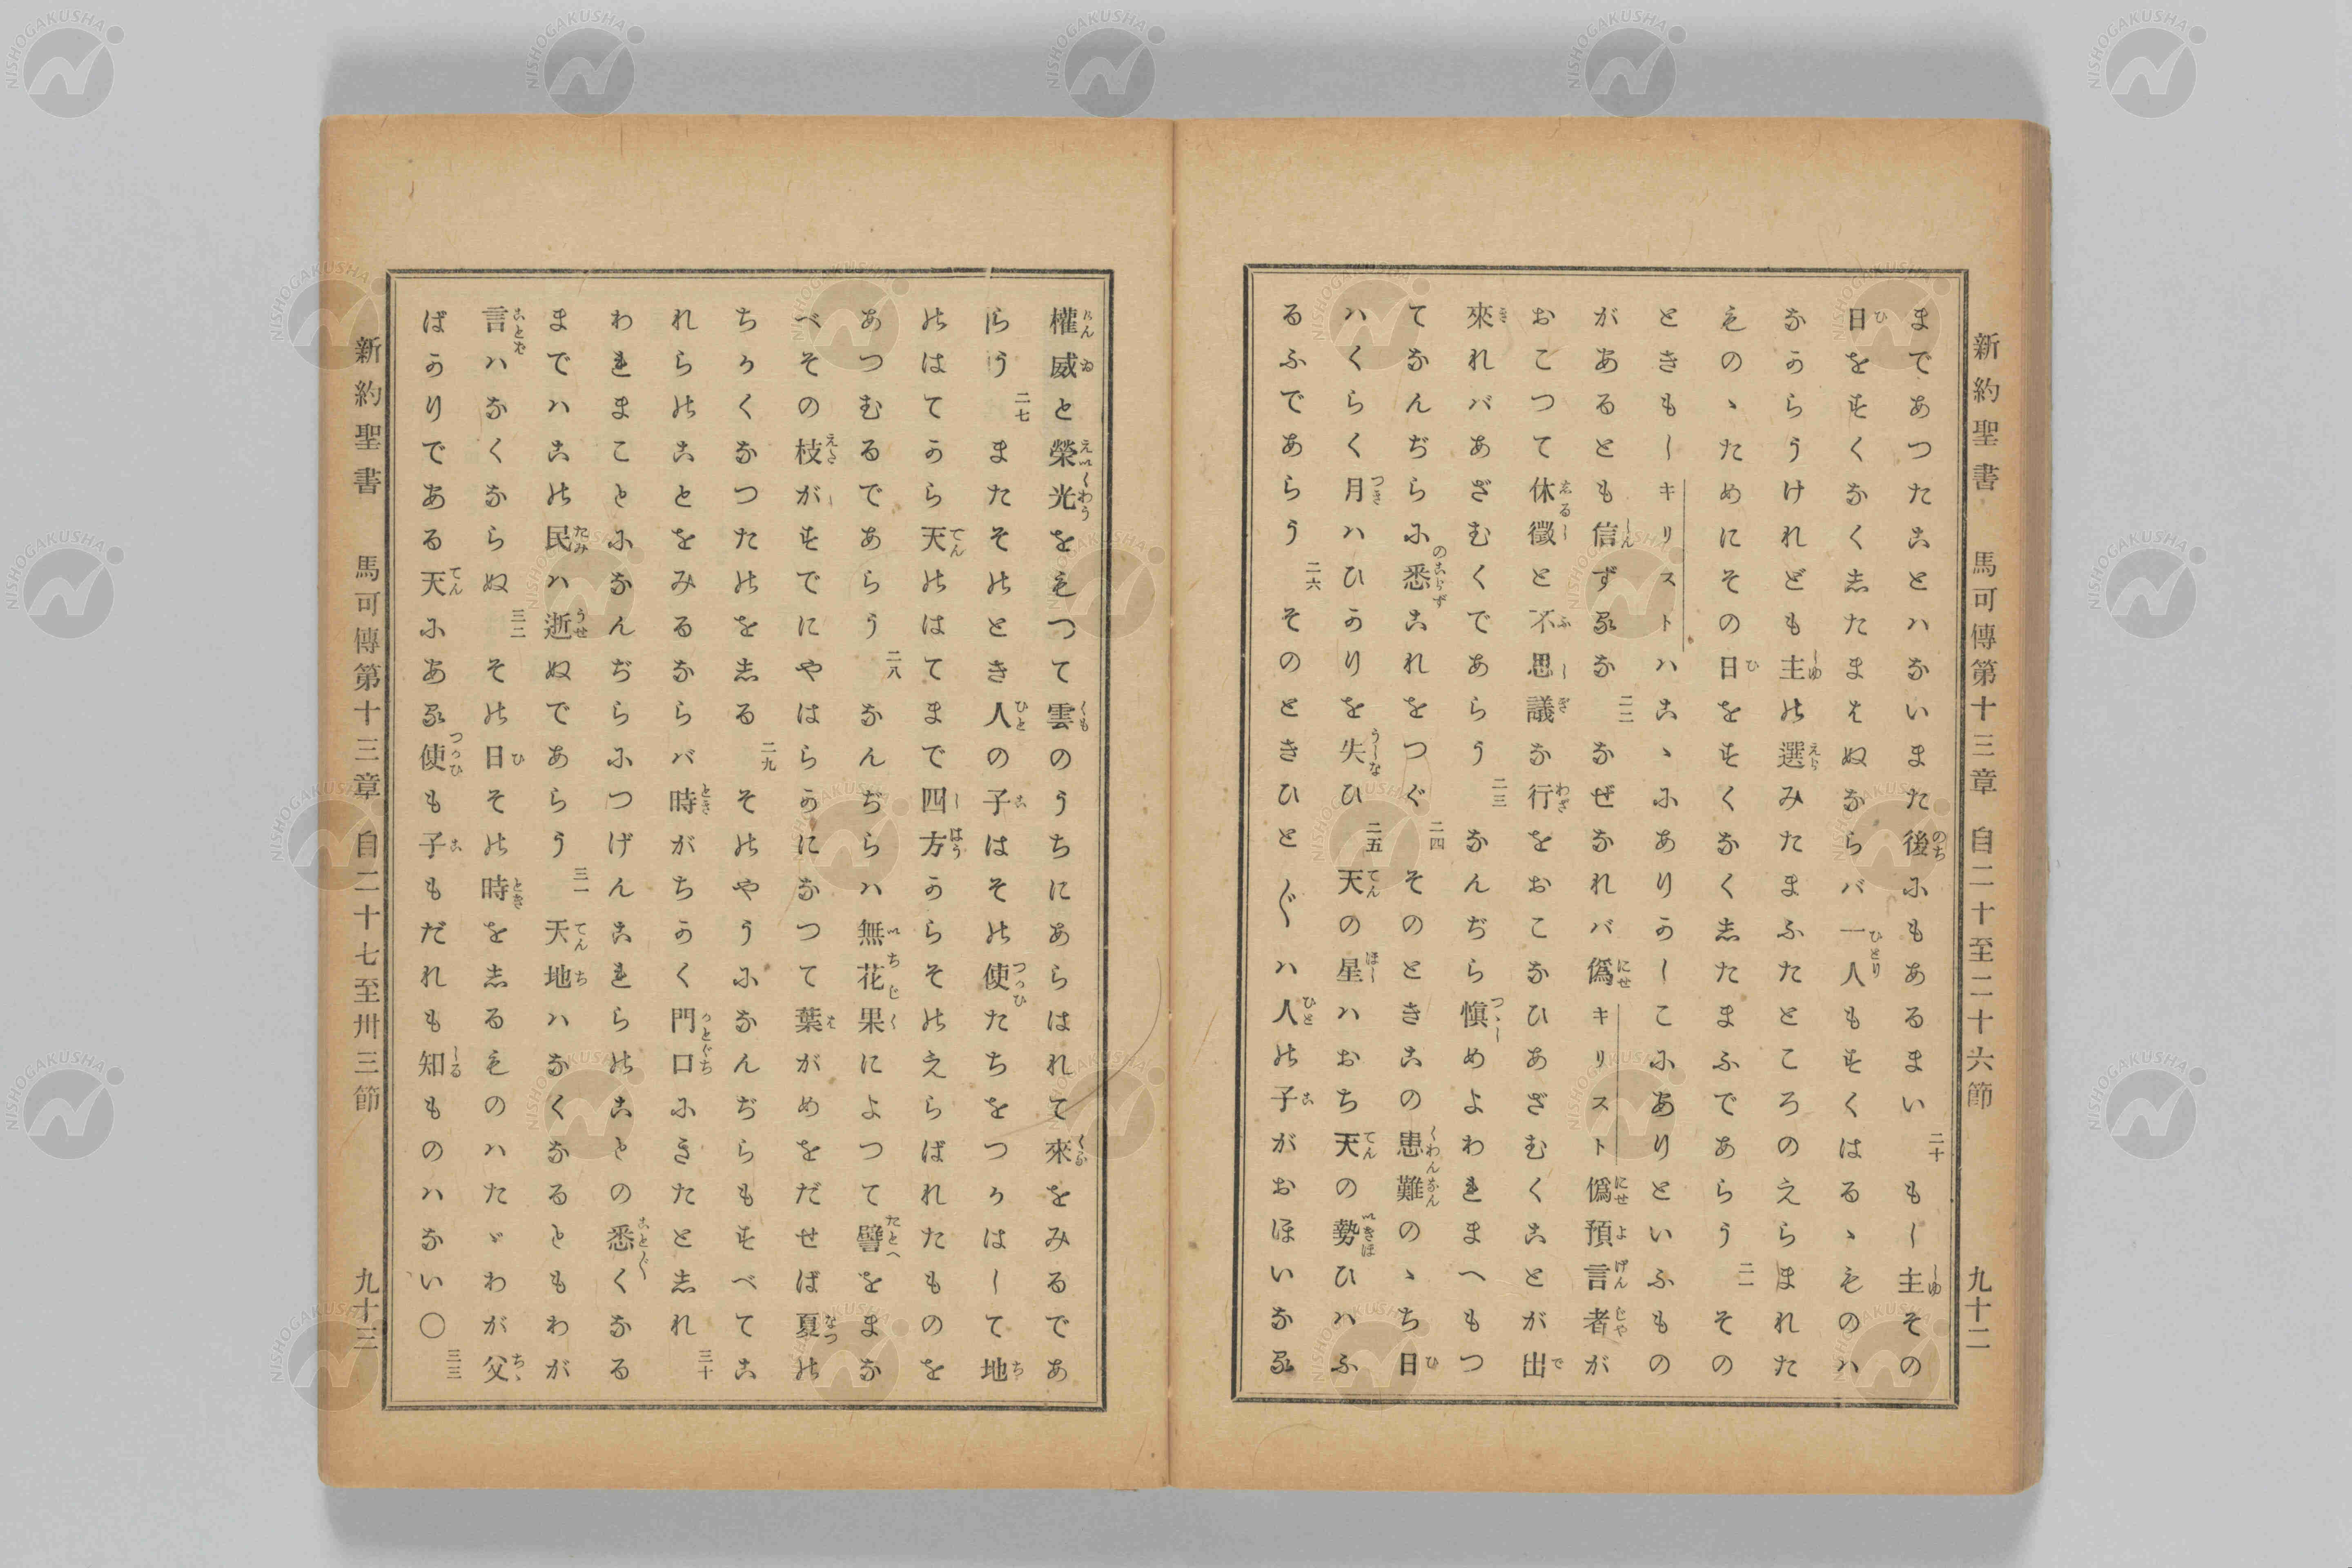 新約聖書 馬可傳第十三章 自二十至二十六節 九十二
まであつたことハないまた後にもあるまい 二十 もし主その
日をすくなく志たまえぬならバ一人もすくはるゝものハ
なからうけれども主の選みたまふたところのえらまれた
ものゝためにその日をすくなく志たまふであらう 二一 その
ときもしキリストハこゝにありかしこにありといふもの
があるとも信ずるな 二二 なぜなれバ僞キリスト僞預言者が
おこつて休徵と不思議な行をおこなひあざむくことが出
來れバあざむくであらう 二三 なんぢら愼めよわれまへもつ
てなんぢらに悉これをつぐ 二四 そのときこの患難のゝち日
ハくらく月ハひかりを失ひ 二五 天の星ハおち天の勢ひハふ
るふであらう 二六 そのときひと〴〵ハ人の子がおほいなる
權威と榮光をもつて雲のうちにあらはれて來をみるであ
らう 二七 またそのとき人の子はその使たちをつかはして地
のはてから天のはてまで四方からそのえらばれたものを
あつむるであらう 二八 なんぢらハ無花果によつて譬をまな
べその枝がすでにやはらかになつて葉がめをだせば夏の
ちかくなつたのを志る 二九 そのやうになんぢらもすべてこ
れらのことをみるならバ時がちかく門口にきたと志れ 三十
われまことになんぢらにつげんこれらのことの悉くなる
まではこの民ハ逝ぬであらう 三一 天地ハなくなるともわが
言ハなくならぬ 三二 その日その時を志るものハたゞわが父
ばかりである天にある使も子もだれも知ものハない〇 三三
新約聖書 馬可傳第十三章 自二十七至卅三節 九十三
NISHOGAKUSHA